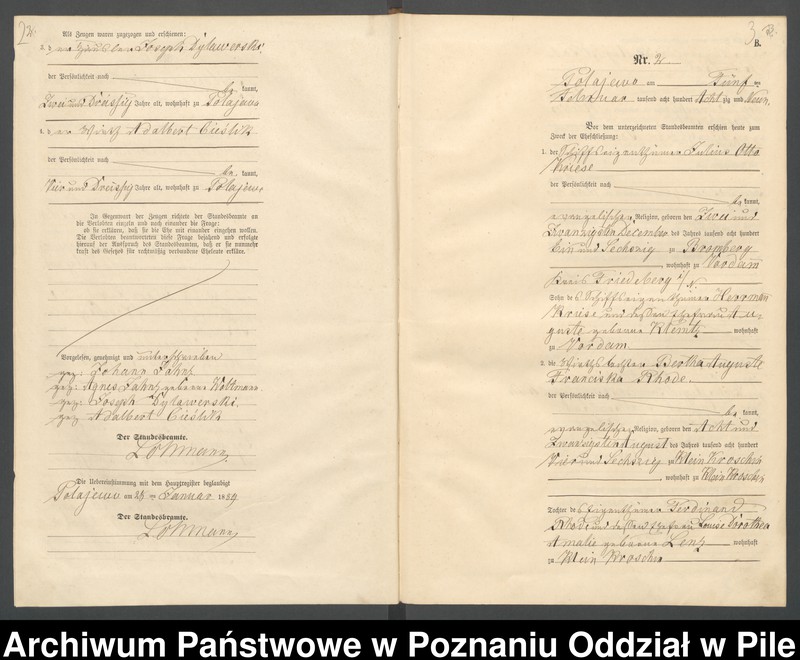 Als Zeugen waren zugezogen und erschienen:
3. der Joseph Dylawerski
der Persönlichkeit nach
be kannt,
Zwei und Dreißig Jahre alt, wohnhaft zu Polajewo
4. der Wirth Adalbert Cieślik
der Persönlichkeit nach
be kannt,
Vier und Dreißig Jahre alt, wohnhaft zu Polajewo
In Gegenwart der Zeugen richtete der Standesbeamte an
die Verlobten einzeln und nach einander die Frage:
ob sie erklären, daß sie die Ehe mit einander eingehen wollen.
Die Verlobten beantworteten diese Frage bejahend und erfolgte
hierauf der Ausspruch des Standesbeamten, daß er sie nunmehr
kraft des Gesetzes für rechtmäßig verbundene Eheleute erkläre.
Vorgelesen, genehmigt und unterschrieben
gez: Johann Jahns
gez: Agnes Jahns geborene Koltmann
gez: Joseph Dylawerski
gez Adalbert Cieślik
Der Standesbeamte.
Lohmann
Die Uebereinstimmung mit dem Hauptregister beglaubigt
Polajewo am ten Januar 1889
Der Standesbeamte.
Lohmann
B.
Nr. 2
Polajewo am Fünf ten
Februar tausend acht hundert Acht zig und Neun
Vor dem unterzeichneten Standesbeamten erschien heute zum
Zweck der Eheschließung:
1. der Schiffseigenthümer Julius Otto
Kriese
der Persönlichkeit nach
be kannt,
evangelischer Religion, geboren den Zwei und
Zwanzigsten December des Jahres tausend acht hundert
Ein und Sechszig zu Bromberg
, wohnhaft zu Vordam
Kreis Friedeberg N/M
Sohn des Schiffseigenthümer Herrman
Kriese und dessen Ehefrau Au-
guste geborene Klemitz wohnhaft
zu Vordam
2. die Wirthstochter Bertha Auguste
Franciska Rhode
der Persönlichkeit nach
be kannt,
evangelischer Religion, geboren den Acht und
Zwanzigsten August des Jahres tausend acht hundert
Vier und Sechszig zu Klein Kroschin
, wohnhaft zu Klein Kroschin
Tochter des Eigenthümer Ferdinand
Rhode und dessen Ehefrau Louise Dorothea
Amalie geborene Lenz wohnhaft
zu Klein Kroschin
Archiwum Państwowe w Poznaniu Oddział w Pile